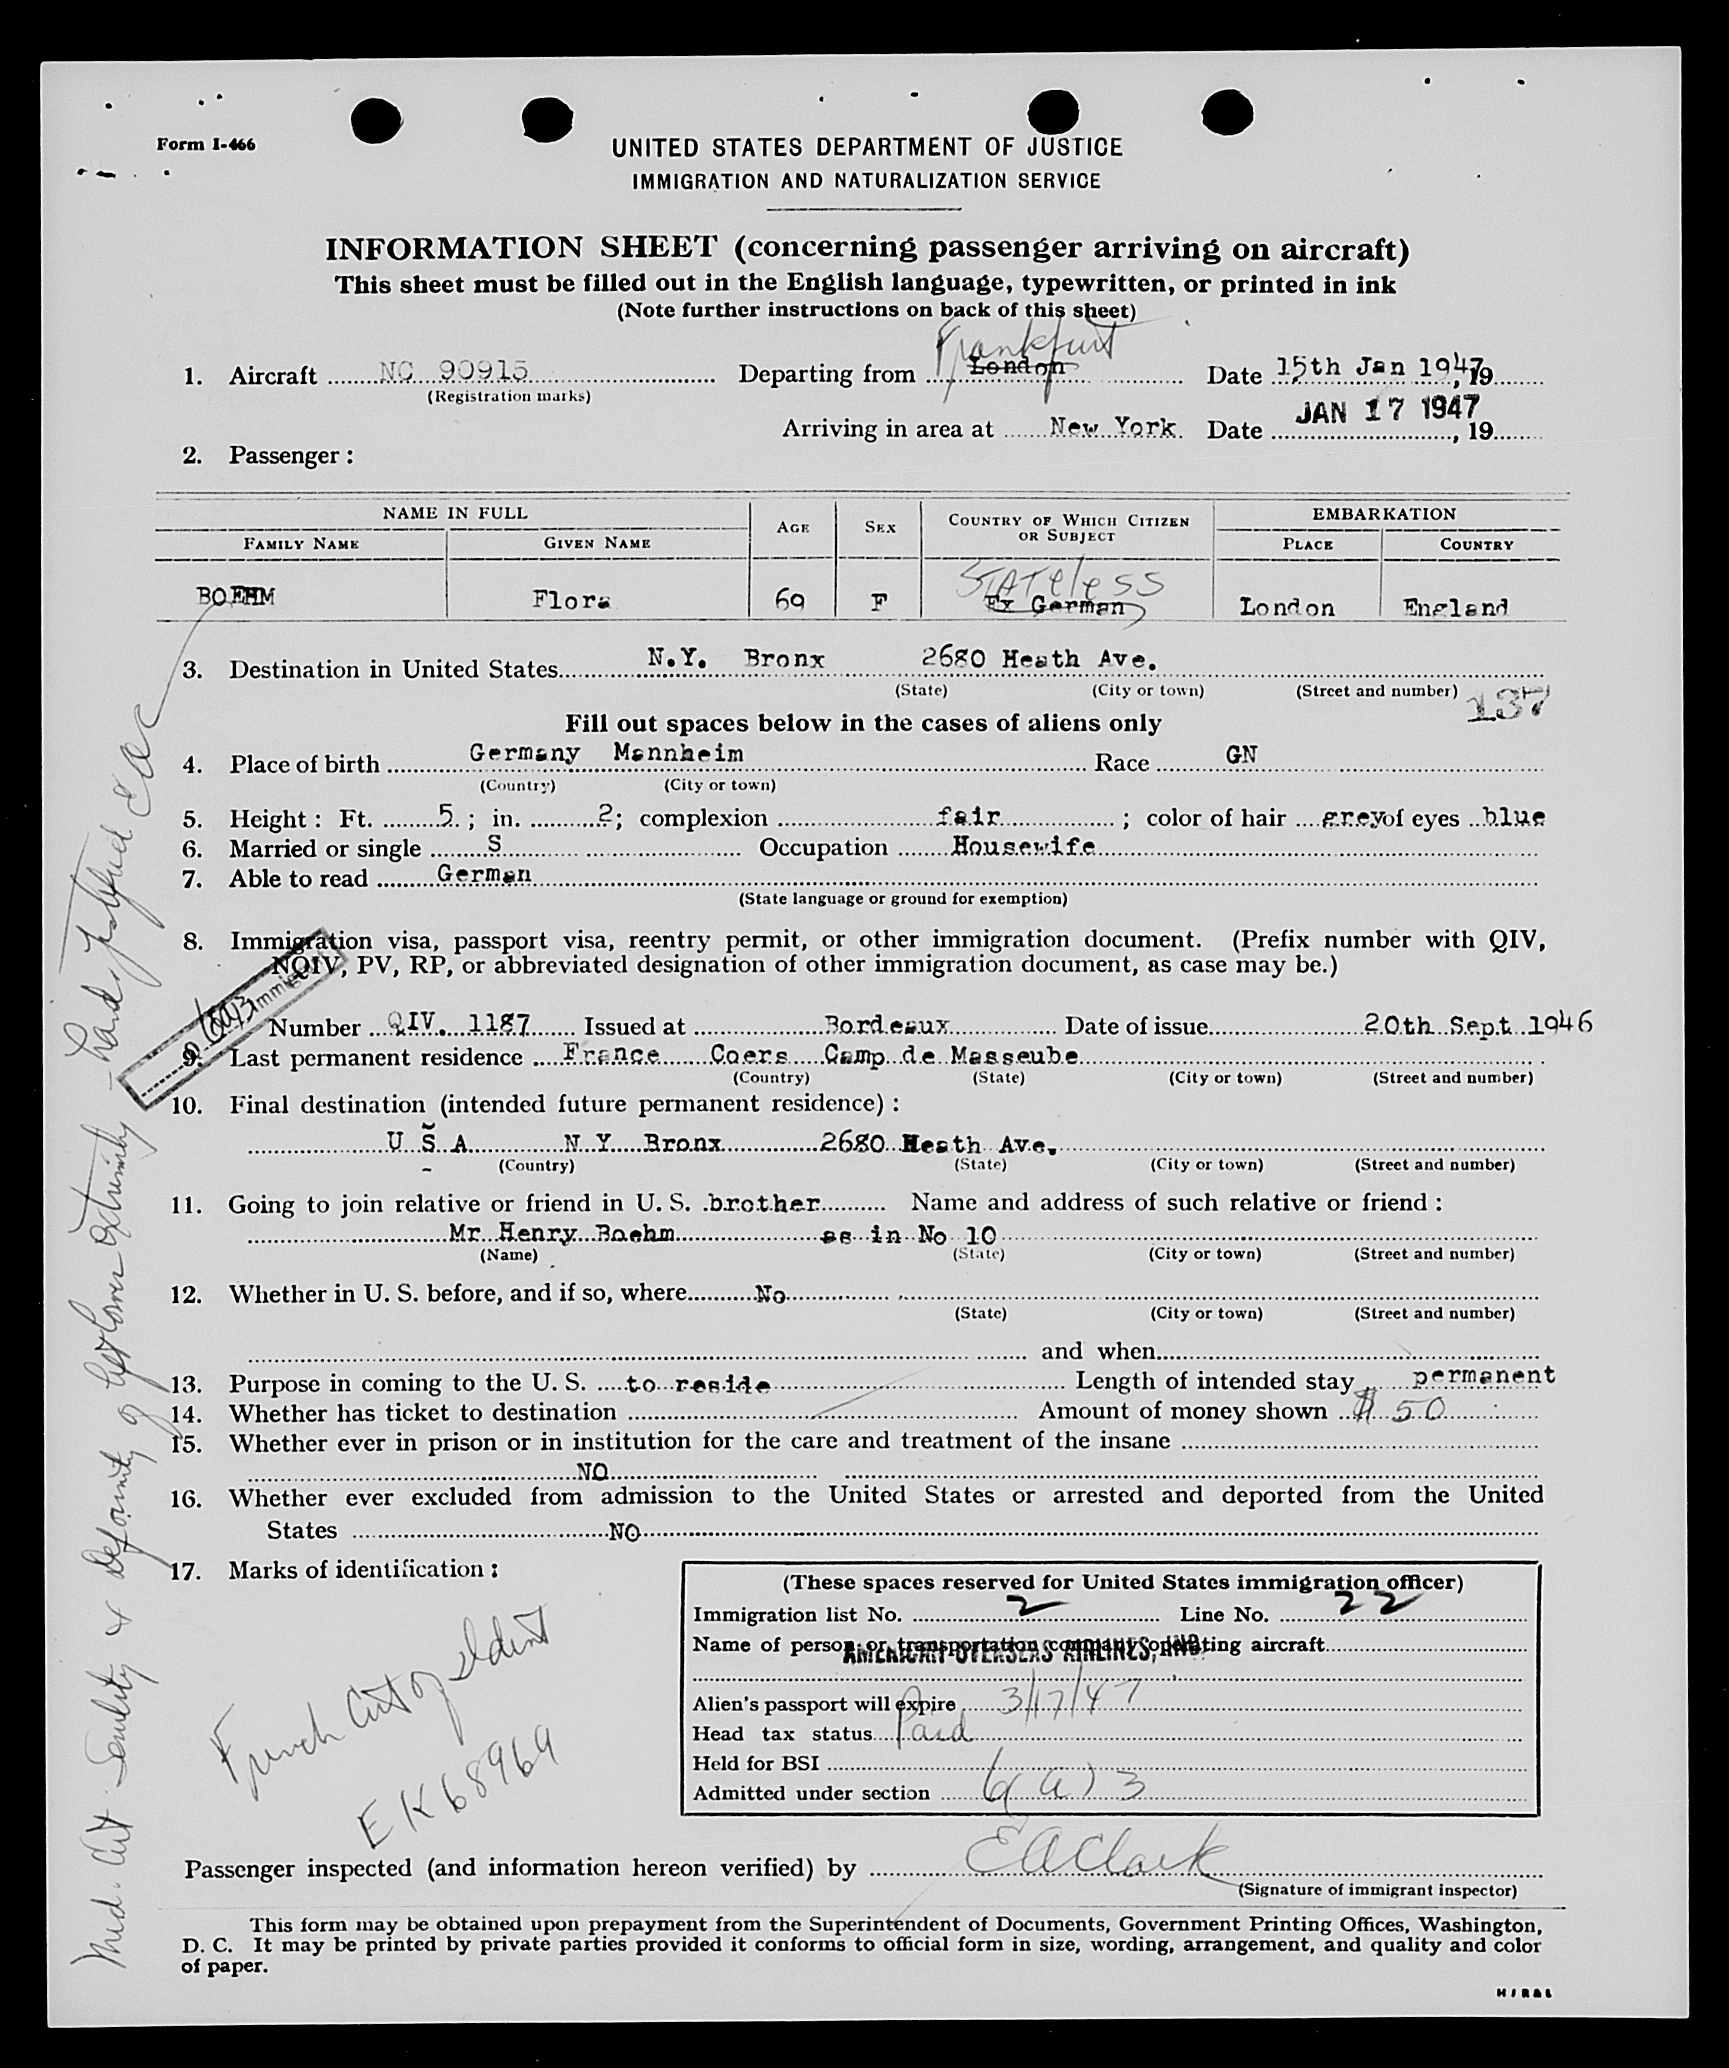 Form I-466
UNITED STATES DEPARTMENT OF JUSTICE
IMMIGRATION AND NATURALIZATION SERVICE
INFORMATION SHEET (concerning passenger arriving on aircraft)
This sheet must be filled out in the English language, typewritten, or printed in ink
(Note further instructions on back of this sheet)
Frankfurt
1. Aircraft NC 90915 Departing from London Date 15th Jan 1947, 19
(Registration marks)
JAN 17 1947
Arriving in area at New York. Date , 19
2. Passenger:
NAME IN FULL AGE SEX COUNTRY OF WHICH CITIZEN OR SUBJECT EMBARKATION
FAMILY NAME GIVEN NAME PLACE COUNTRY
STATEless
BOEHM Flora 69 F Ex German London England
3. Destination in United States N.Y. Bronx 2680 Heath Ave.
(State) (City or town) (Street and number)
137
Fill out spaces below in the cases of aliens only
4. Place of birth Germany Mannheim Race GN
(Country) (City or town)
5. Height: Ft. 5; in. 2; complexion fair; color of hair grey of eyes blue
6. Married or single S Occupation Housewife
7. Able to read German
(State language or ground for exemption)
8. Immigration visa, passport visa, reentry permit, or other immigration document. (Prefix number with QIV,
NQIV, PV, RP, or abbreviated designation of other immigration document, as case may be.)
Number QIV. 1187 Issued at Bordeaux Date of issue 20th Sept 1946
9. Last permanent residence France Coers Camp de Masseube
(Country) (State) (City or town) (Street and number)
10. Final destination (intended future permanent residence):
U S A N Y Bronx 2680 Heath Ave.
(Country) (State) (City or town) (Street and number)
11. Going to join relative or friend in U. S. brother Name and address of such relative or friend:
Mr Henry Boehm as in No 10
(Name) (State) (City or town) (Street and number)
12. Whether in U. S. before, and if so, where No
(State) (City or town) (Street and number)
and when
13. Purpose in coming to the U. S. to reside Length of intended stay permanent
14. Whether has ticket to destination Amount of money shown $ 50
15. Whether ever in prison or in institution for the care and treatment of the insane
NO
16. Whether ever excluded from admission to the United States or arrested and deported from the United
States NO
17. Marks of identification:
French Cert of Ident
EK68969
(These spaces reserved for United States immigration officer)
Immigration list No. 2 Line No. 22
Name of person or transportation company operating aircraft
AMERICAN OVERSEAS AIRLINES, INC.
Alien's passport will expire 3/17/47
Head tax status Paid
Held for BSI
Admitted under section 6(a)3
Passenger inspected (and information hereon verified) by E A Clark
(Signature of immigrant inspector)
This form may be obtained upon prepayment from the Superintendent of Documents, Government Printing Offices, Washington,
D. C. It may be printed by private parties provided it conforms to official form in size, wording, arrangement, and quality and color
of paper.
Med. Cert. Senility & deformity of left lower extremity